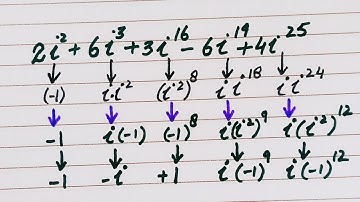 2i² + 6i³ + 3i¹⁶ - 6i¹⁹ + 4i²⁵
↓ ↓ ↓ ↓ ↓
(-1) i·i² (i²)⁸ i·i¹⁸ i·i²⁴
↓ ↓ ↓ ↓ ↓
-1 i(-1) (-1)⁸ i(i²)⁹ i(i²)¹²
↓ ↓ ↓ ↓ ↓
-1 -i +1 i(-1)⁹ i(-1)¹²